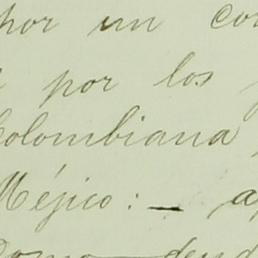 por un
por los
Colombiana
Méjico: — a